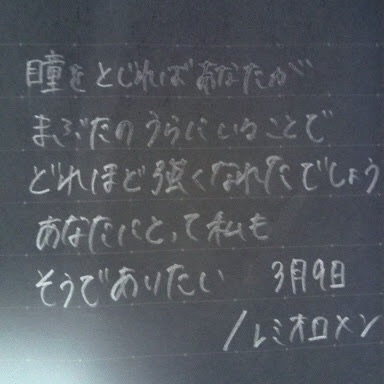 瞳をとじればあなたが
まぶたのうらにいることで
どれほど強くなれたでしょう
あなたにとって私も
そうでありたい 3月9日
/レミオロメン